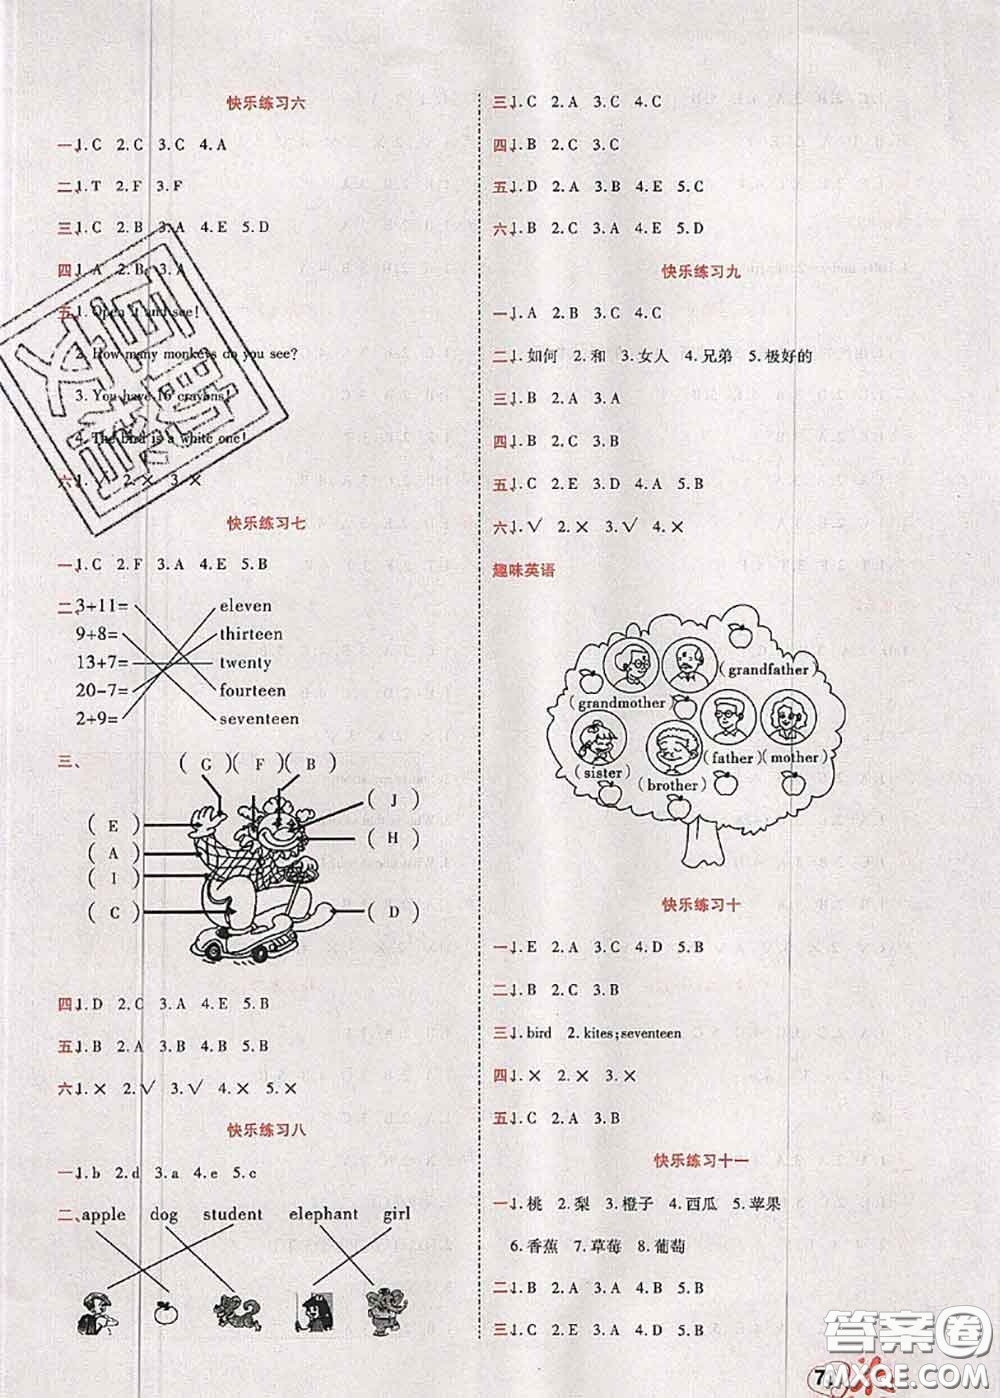 快乐练习六
一、1.C 2.C 3.C 4.A
二、1.T 2.F 3.F
三、1.C 2.B 3.A 4.E 5.D
四、1.A 2.B 3.A
五、1. Open it and see!
2. How many monkeys do you see?
3. You have 16 crayons!
4. The bird is a white one!
六、1. 2.× 3.×
快乐练习七
一、1.C 2.F 3.A 4.E 5.B
二、3+11= eleven
9+8= thirteen
13+7= twenty
20-7= fourteen
2+9= seventeen
三、
( G )( F )( B )
( J )
( E )
( H )
( A )
( I )
( C ) ( D )
四、1.D 2.C 3.A 4.E 5.B
五、1.B 2.A 3.A 4.B 5.B
六、1.× 2.√ 3.√ 4.× 5.×
快乐练习八
一、1.b 2.d 3.a 4.e 5.c
二、apple dog student elephant girl
三、1.C 2.A 3.C 4.C
四、1.B 2.C 3.C
五、1.D 2.A 3.B 4.E 5.C
六、1.B 2.C 3.A 4.B
快乐练习九
一、1.A 2.B 3.C 4.C
二、1.如何 2.和 3.女人 4.兄弟 5.极好的
三、1.B 2.A 3.A
四、1.B 2.C 3.B
五、1.C 2.E 3.D 4.A 5.B
六、1.√ 2.× 3.√ 4.×
趣味英语
(grandfather)
(grandmother)
(father) (mother)
(sister)
(brother)
快乐练习十
一、1.E 2.A 3.C 4.D 5.B
二、1.B 2.C 3.B
三、1.bird 2.kites;seventeen
四、1.× 2.× 3.×
五、1.C 2.A 3.B
快乐练习十一
一、1.桃 2.梨 3.橙子 4.西瓜 5.苹果
6.香蕉 7.草莓 8.葡萄
二、1.B 2.B 3.A 4.C 5.B
三、1.C 2.E 3.A 4.D 5.B
答案圈
MXQE.COM